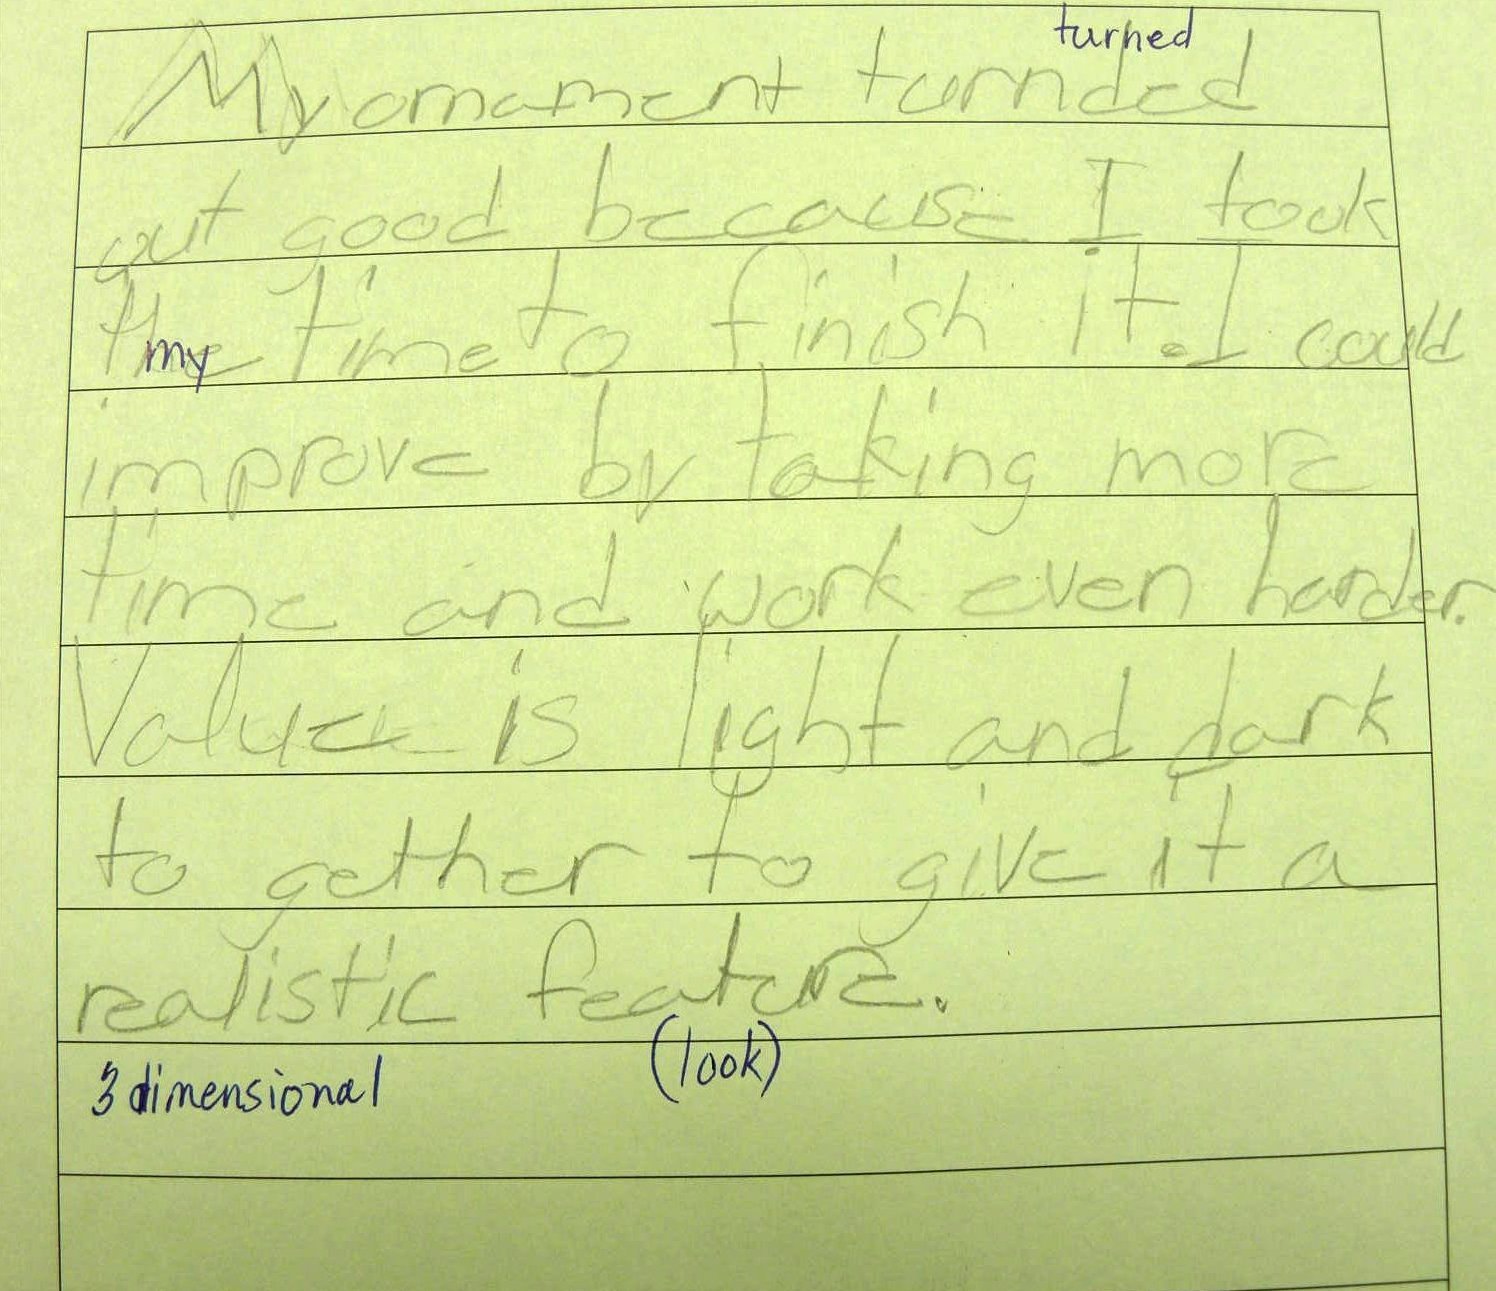 turned
My ornament turnded
out good because I took
the time to finish it. I could
my
improve by taking more
time and work even harder.
Value is light and dark
to gether to give it a
realistic feature.
3 dimensional (look)